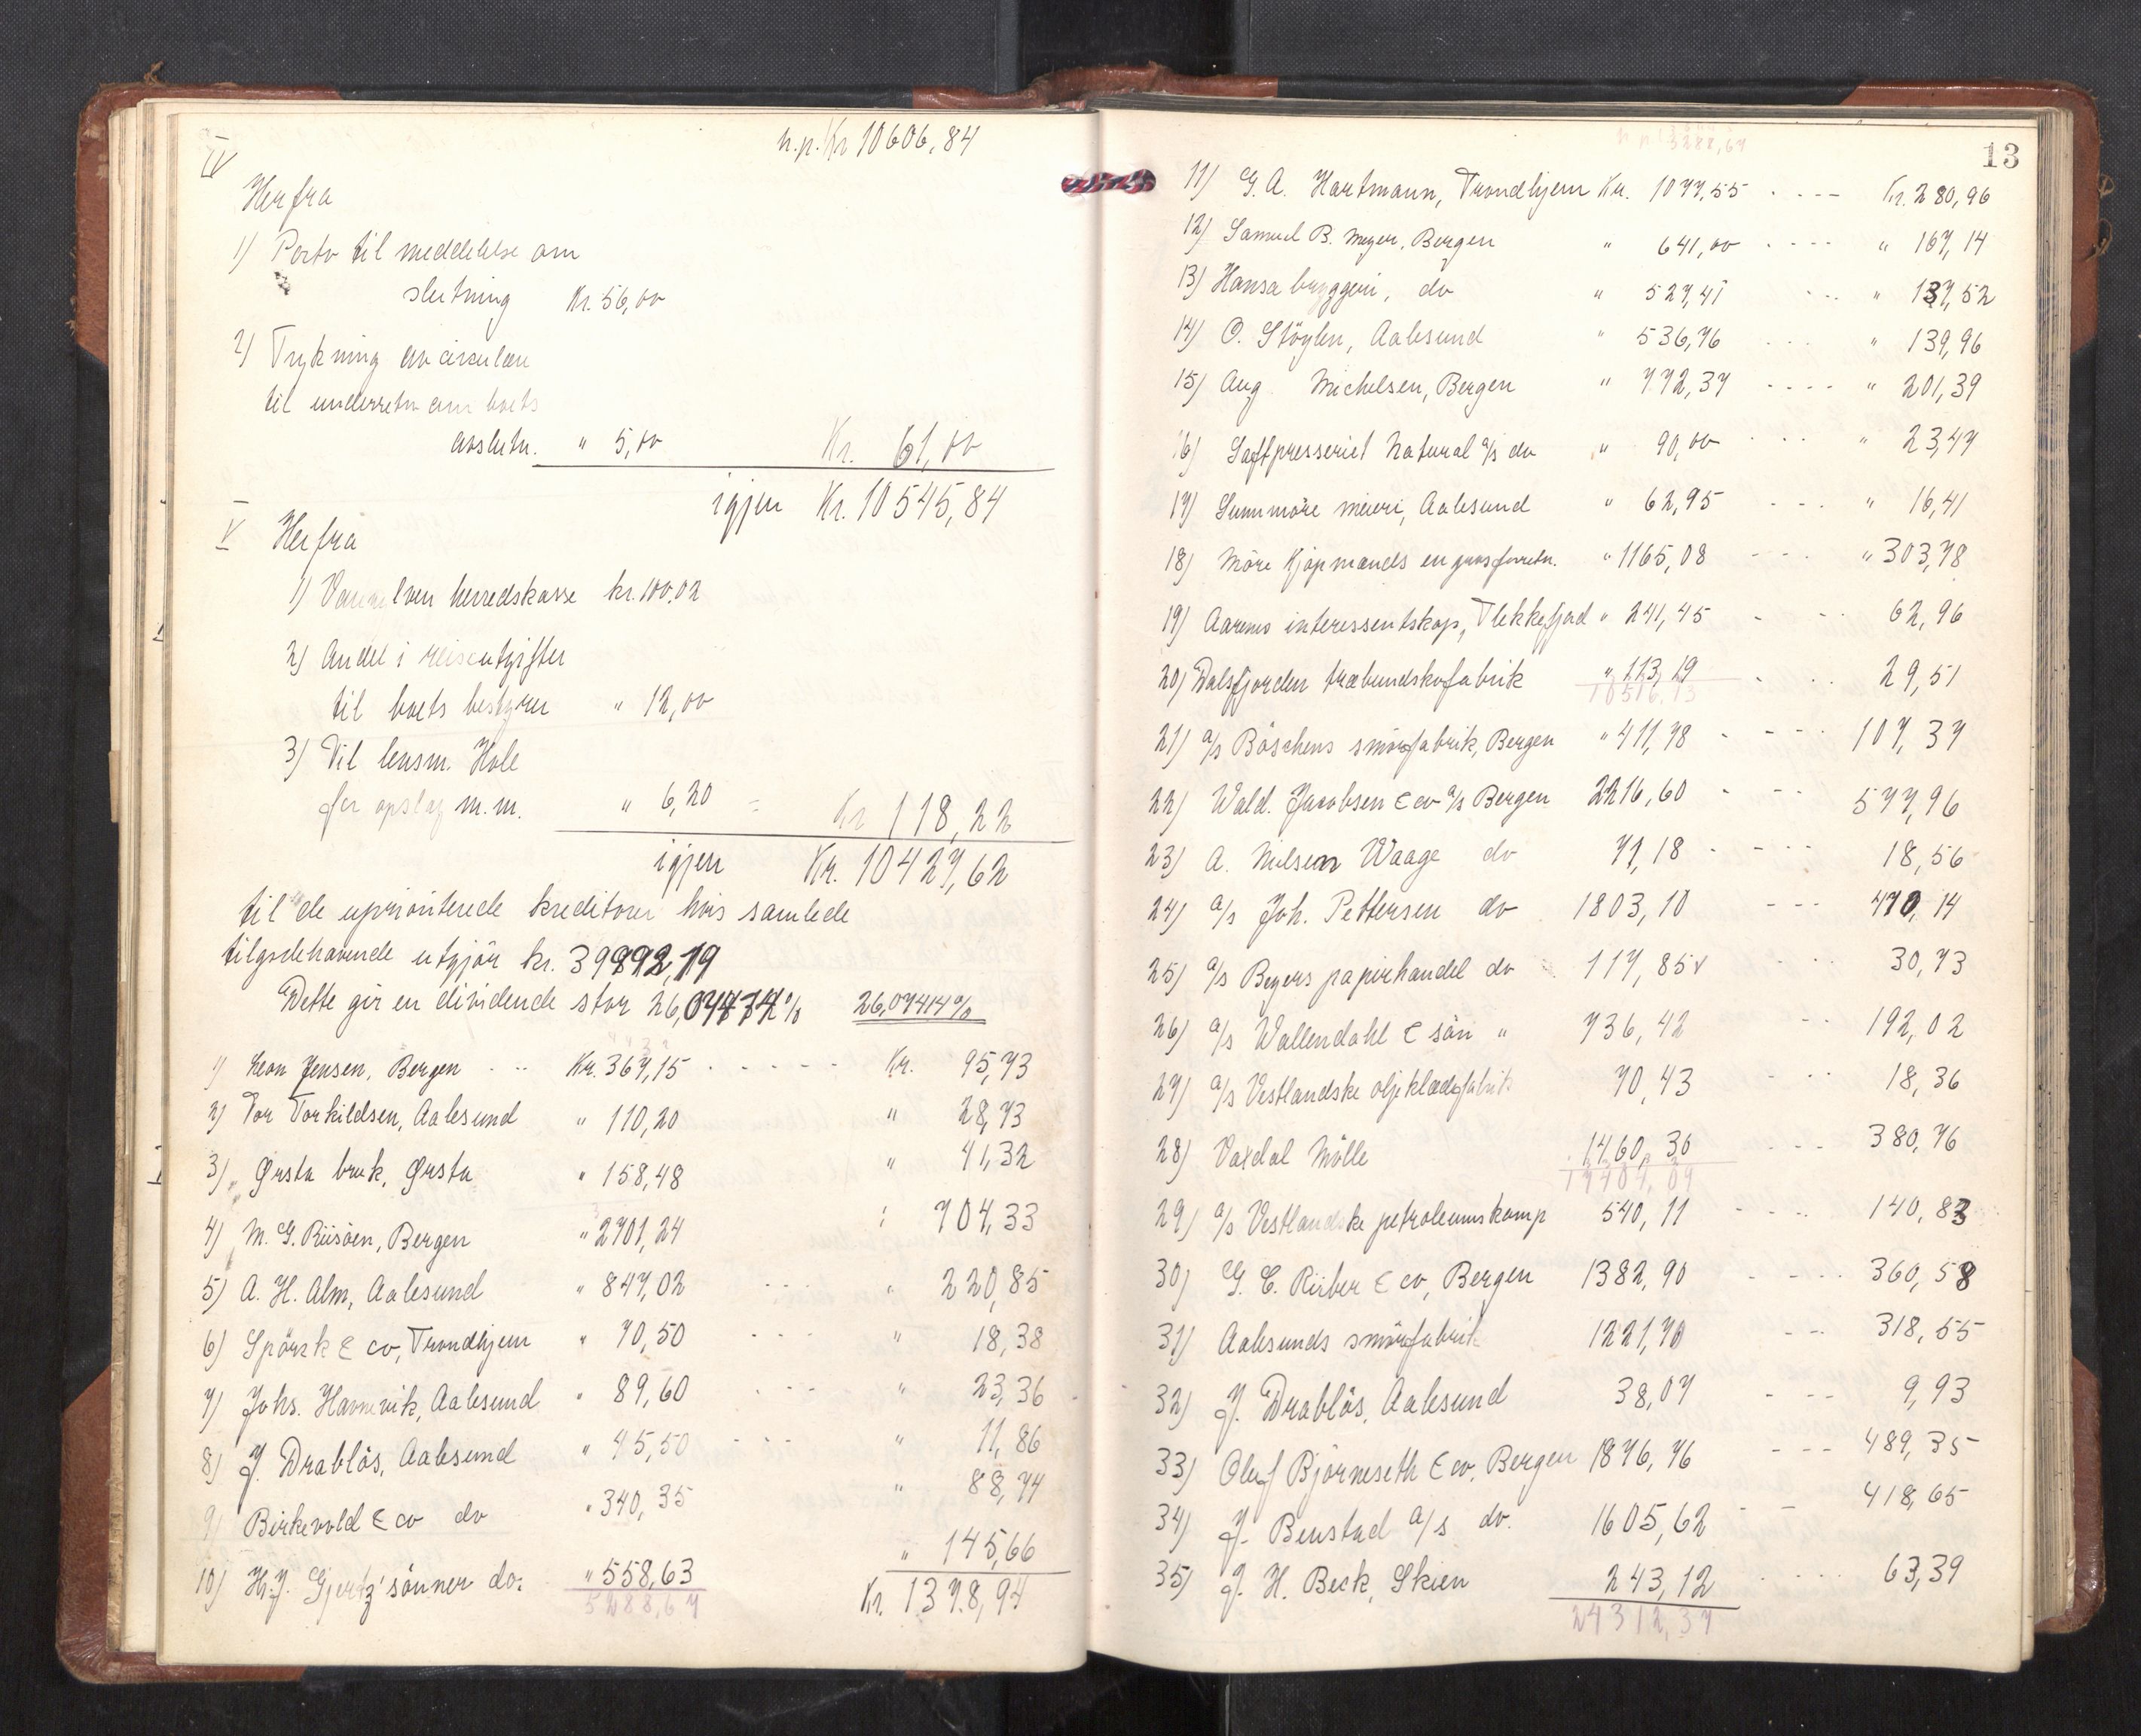 IV
n.p. Kr 10606,84
Herfra
1) Porto til meddelelse om
slutning Kr. 56,00
2) Trykning av cirkulære
til underretn om boets
avslutn. " 5,00 Kr. 61,00
igjen Kr. 10545,84
V Herfra
1) Vanelven herredskasse kr. 100,02
2) Andel i reiseutgifter
til boets bestyrer " 12,00
3) Til lensm. Hole
for opslag m.m. " 6,20 = Kr 118,22
igjen Kr. 10427,62
til de uprioriterede kreditorer hvis samlede
tilgodehavende utgjör kr. 39992,19
Dette gir en dividende stor 26,07474% 26,07414%
1) Leon Jensen, Bergen Kr. 367,15 Kr. 95,73
2) Tor Torkildsen, Aalesund " 110,20 " 28,73
3) Ørsta bruk, Ørsta " 158,48 " 41,32
4) M. G. Riisöen, Bergen " 2701,24 : 704,33
5) A. H. Alm, Aalesund " 847,02 " 220,85
6) Spörck & co, Trondhjem " 70,50 " 18,38
7) Johs. Havnevik, Aalesund " 89,60 " 23,36
8) J. Drablös, Aalesund " 45,50 " 11,86
9) Birkevold & co do " 340,35 " 88,74
10) H. J. Gjertz' sönner do. " 558,63 " 145,66
5288,67 Kr. 1378,94
n.p. 5288,67
13
11) G. A. Hartmann, Trondhjem Kr. 1077,55 Kr. 280,96
12) Samuel B. Meyer, Bergen " 641,00 " 167,14
13) Hansa bryggeri, do " 527,41 " 137,52
14) O. Stöylen, Aalesund " 536,76 " 139,96
15) Aug Michelsen, Bergen " 772,37 " 201,39
16) Saftpresseriet Natural a/s do " 90,00 " 23,47
17) Sunnmöre meieri, Aalesund " 62,95 " 16,41
18) Möre Kjöpmands engrosforretn. " 1165,08 " 303,78
19) Aarenes interessentskap, Flekkefjord " 241,45 62,96
20) Dalsfjorden træbundskofabrik " 113,19 29,51
10516,13
21) a/s Böschens smörfabrik, Bergen " 411,78 107,37
22) Wald. Jacobsen & co a/s Bergen 2216,60 577,96
23) A. Nilsen Waage do 71,18 18,56
24) a/s Joh. Pettersen do 1803,10 470,14
25) a/s Beyers papirhandel do 117,85 30,73
26) a/s Wallendahl & sön " 736,42 192,02
27) a/s Vestlandske oljeklædefabrik 70,43 18,36
28) Vaxdal Mölle 1460,30 380,76
17404,09
29) a/s Vestlandske petroleumskomp 540,11 140,83
30) G. C. Rieber & co, Bergen 1382,90 360,58
31) Aalesunds smörfabrik 1221,70 318,55
32) J. Drablös, Aalesund 38,07 9,93
33) Oluf Björneseth & co, Bergen 1876,76 489,35
34) J. Benstad a/s do. 1605,62 418,65
35) J. H. Beck, Skien 243,12 63,39
24312,37